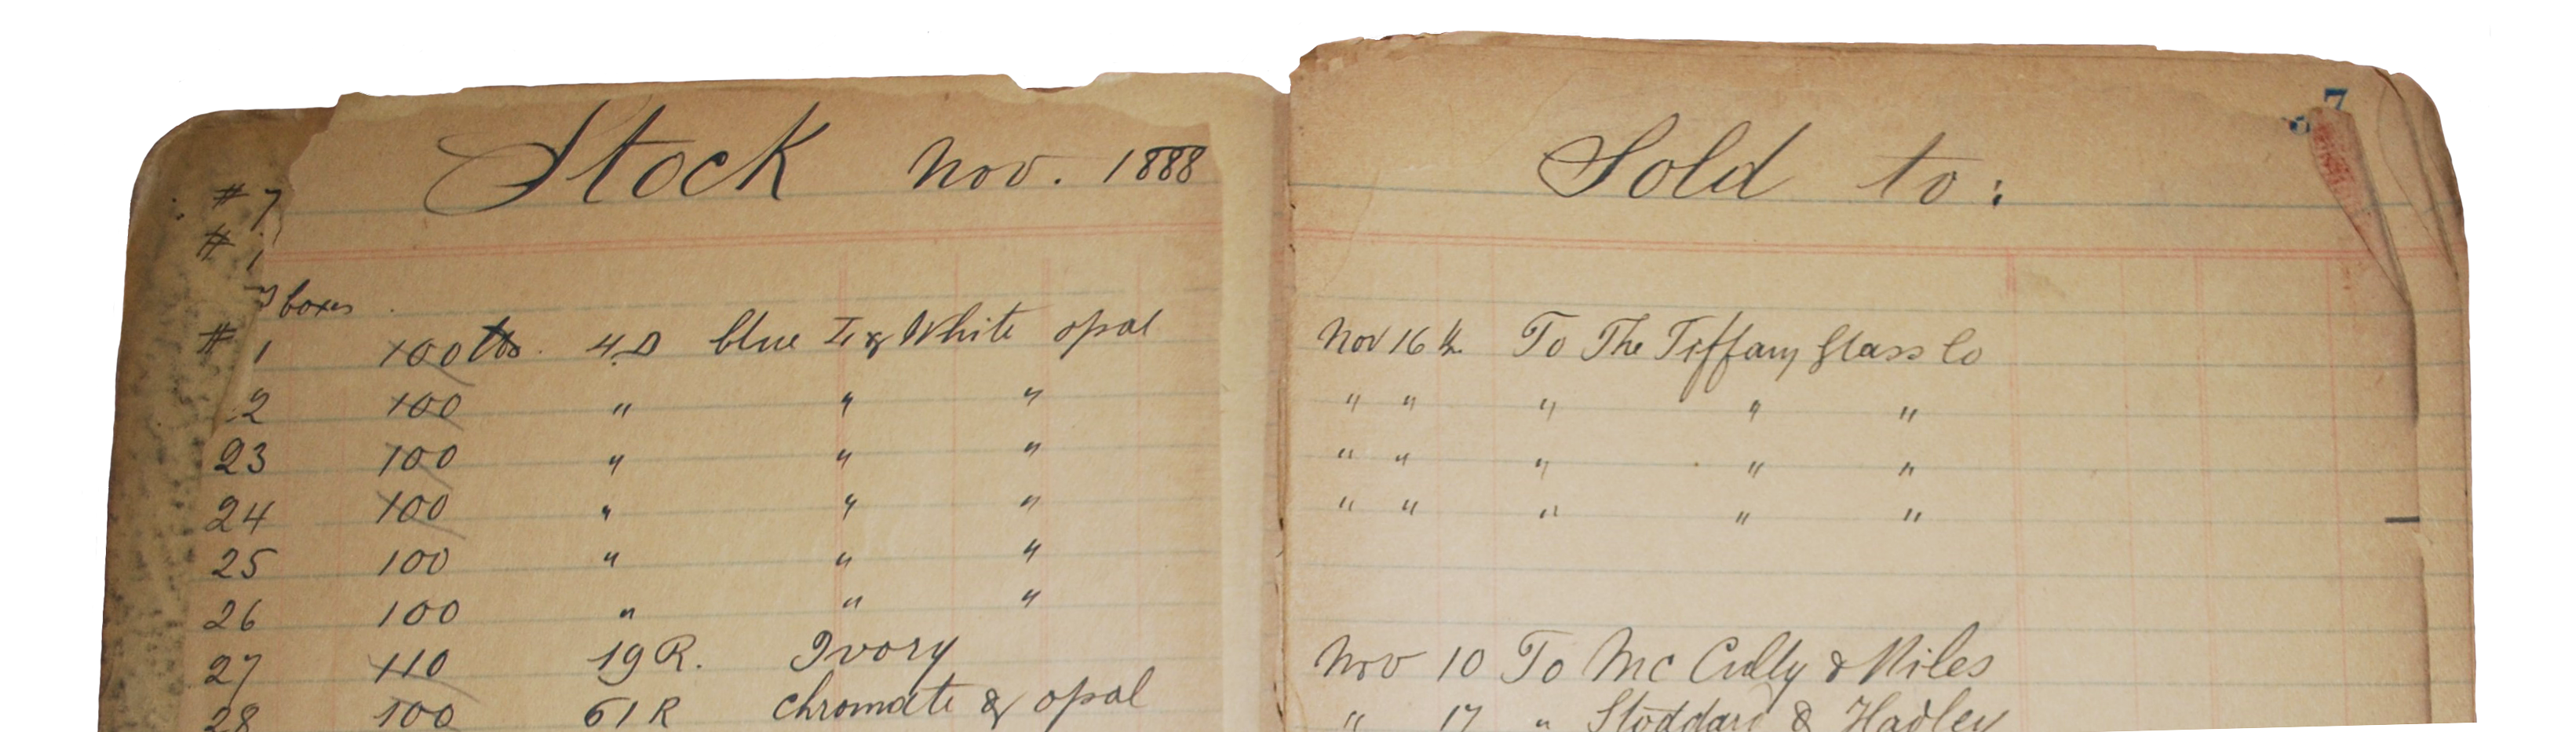 Stock Nov. 1888
# 7
#
boxes
# 1 100 lbs. 4D blue & White opal
2 100 " " "
23 100 " " "
24 100 " " "
25 100 " " "
26 100 " " "
27 110 19 R. Ivory
28 100 61 R chromate & opal
7
Sold to:
Nov 16 th. To The Tiffany Glass Co
" " " " "
" " " " "
" " " " "
Nov 10 To Mc Cully & Miles
" 17 " Stoddard & Hadley